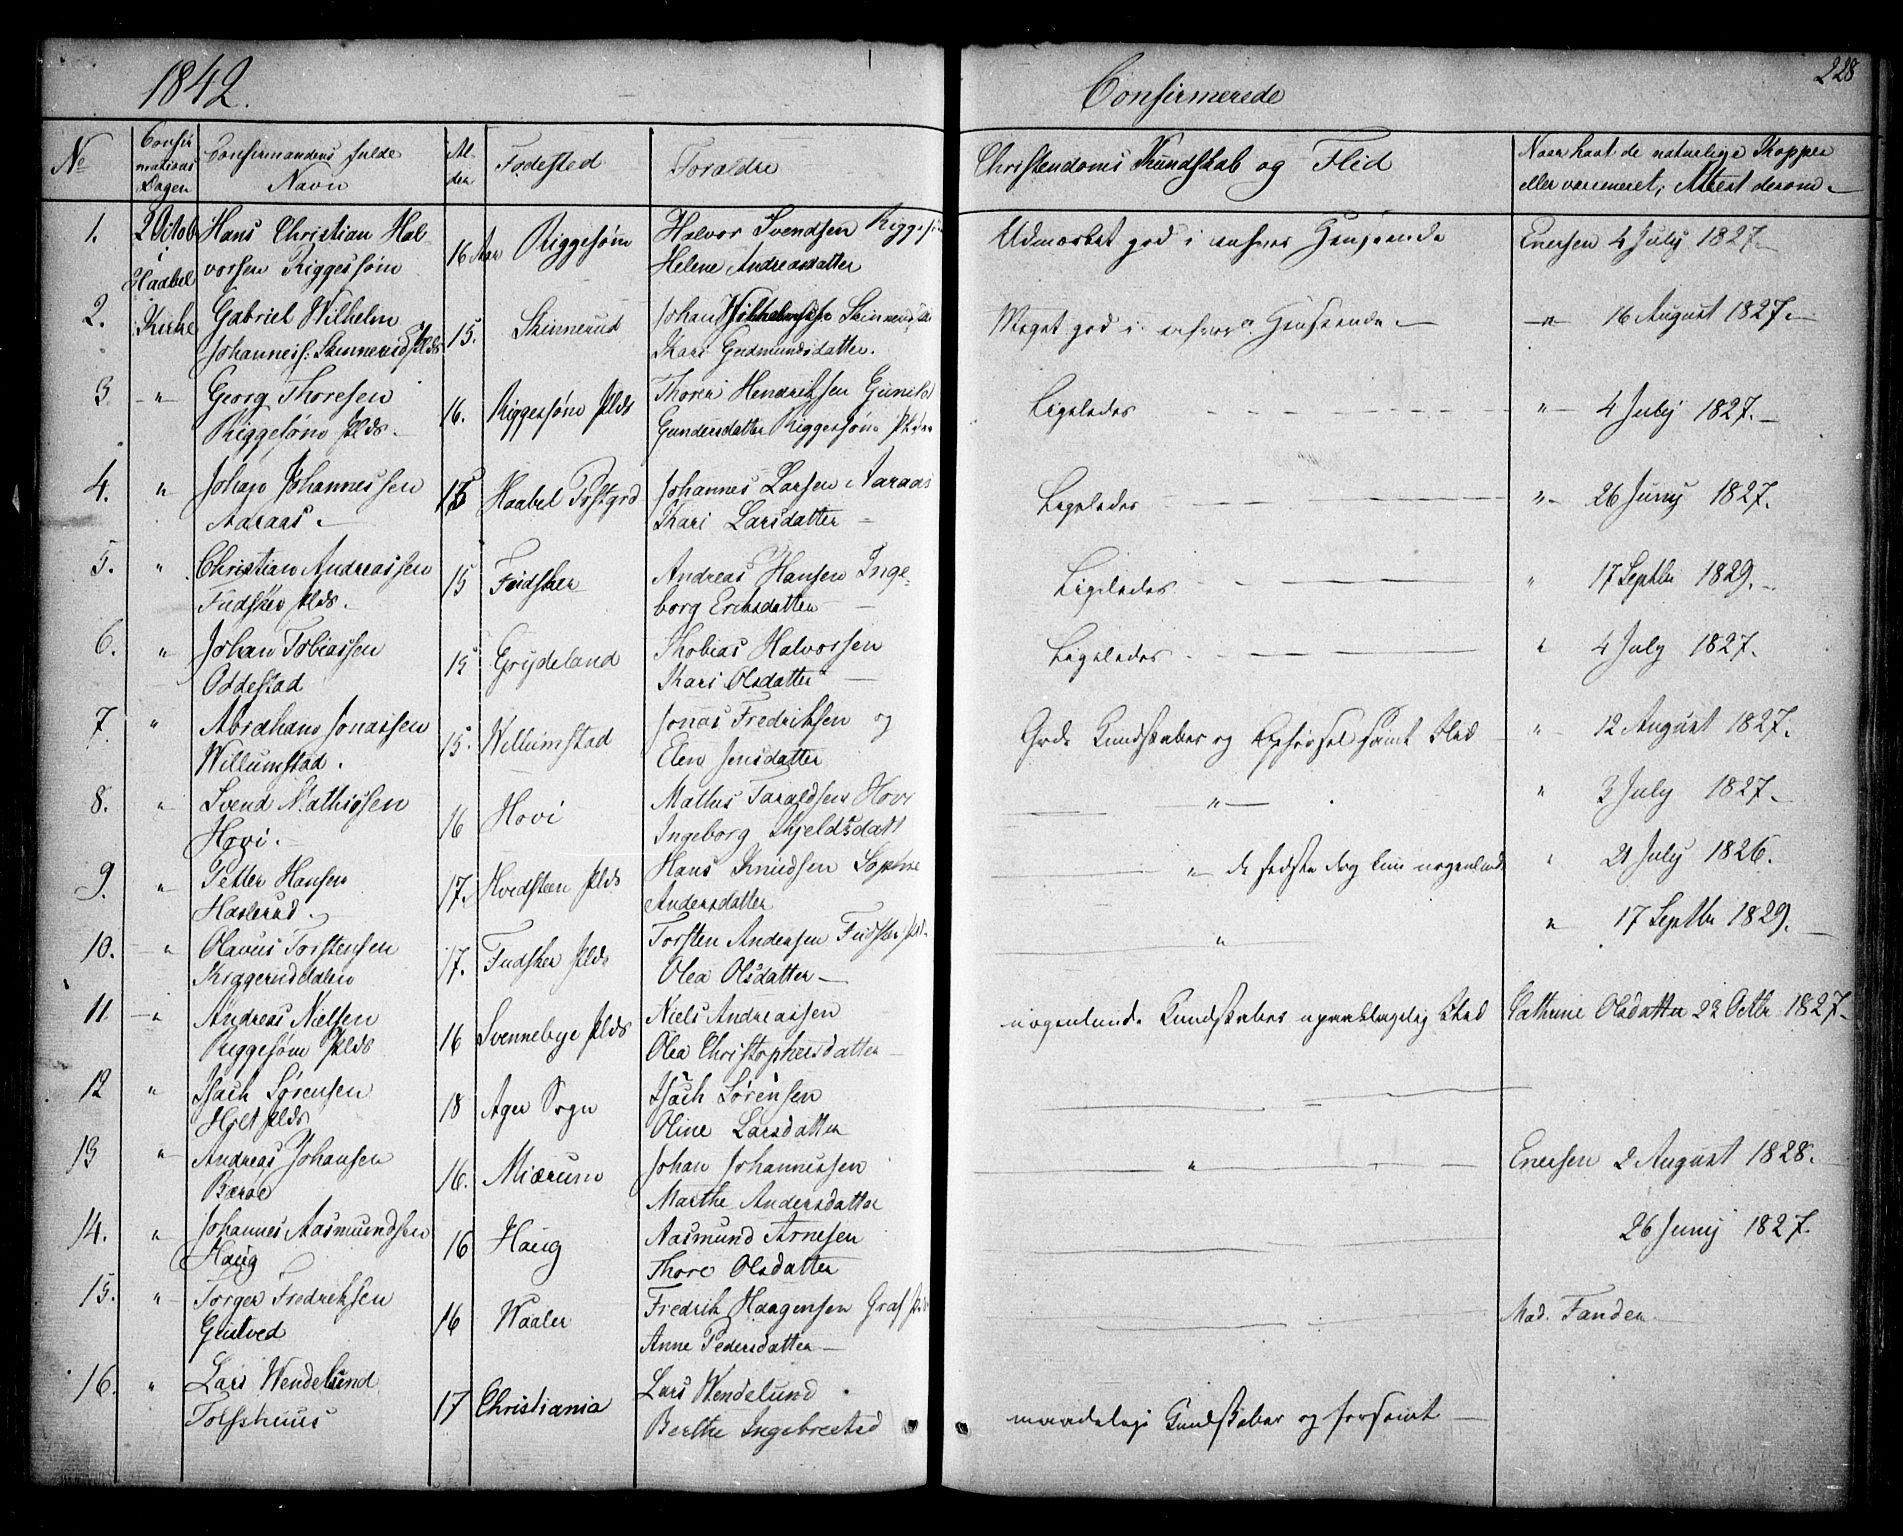 1842.
Confirmerede
228
No
Confir
mations
Dagen
Confirmandens fulde
Navn
Al-
der
Fødested
Forældre
Christendoms Kundskab og Flid
Naar havt de naturlige Kopper
eller vaccineret, Attest derom
1.
2 Octob
i
Haabel
Kirke
Hans Christian Hal-
vorsen Riggesøm
16 Aar
Riggesøm
Halvor Svendsen
Helene Andreasdatter
Udmærket god i enhver Henseende
Enersen 4 July 1827.
2.
Gabriel Wilhelm
Johanness: Skinnerud Plds
15.
Skinnerud
Johan
Kari Gudmundsdatter.
Meget god i enhver Henseende
" 16 August 1827.
3
"
Georg Thoresen
Riggesøm Plds.
16.
Riggesøm Plds
Thorer Hendriksen
Gundersdatter Riggesøm
Ligeledes
" 4 July 1827.
4.
"
Johan Johannessen
Aaraas.
Haabel Postgrd
Johannes Larsen Aaraas
Kari Larsdatter
Ligeledes
" 26 Juny 1827.
5.
"
Christian Andreassen
Fudsker Plds.
15
Fudsker
Andreas Hansen Inge-
borg Ericksdatter
Ligeledes
" 17 Septbr 1829.
6.
"
Johan Tobiassen
Oddestad
15
Grydeland
Thobias Halvorsen
Kari Olsdatter
Ligeledes
" 4 July 1827.
7.
"
Abraham Jonassen
Willumstad.
15.
Willumstad
Jonas Fredriksen og
Elen Jensdatter
Gode Kundskaber og Opførsel samt Flid
" 12 August 1827.
8.
"
Svend Mathissen
Hovi.
16
Hovi
Mathis Taraldsen Hovi
Ingeborg Kjeldsdatt
"
" 3 July 1827.
9.
"
Petter Hansen
Haslerud.
17.
Kvedsteen Plds
Hans Knudsen Sophie
Andersdatter
" de sidste dog kun nogenlunde
" 21 July 1826.
10.
"
Olavus Torstensen
Kraggeruddalen
17.
Fudsker Plds
Torsten Andersen Fudsker Pld
Olea Olsdatter
"
" 17 Septbr 1829.
11.
"
Andreas Nielsen
Riggesøm Plds
16
Svennebye Plds
Niels Andreassen
Olea Christophersdatter
nogenlunde Kundskaber upaaklagelig Flid
Cathrine Olsdatter 23 Octbr 1827.
12
"
Isach Sørensen
Holt Plds
18
Ager Sogn
Isach Sørensen
Oline Larsdatter
13
"
Andreas Johansen
Bærøe
16.
Miærum
Johan Johannessen
Marthe Andersdatter
"
Enersen 2 August 1828.
14.
"
Johannes Aasmundsen
Haug
16
Haug
Aasmund Arnesen
Thore Olsdatter
26 Juny 1827.
15.
"
Torger Fredriksen
Gautved
16
Waaler
Fredrik Haagensen Graf
Anne Pedersdatter
Mad. Fanden
16.
"
Lars Wendelund
Tofshuus
17
Christiania
Lars Wendelund
Berthe Ingebretsd
maadelige Kundskaber og forsømt